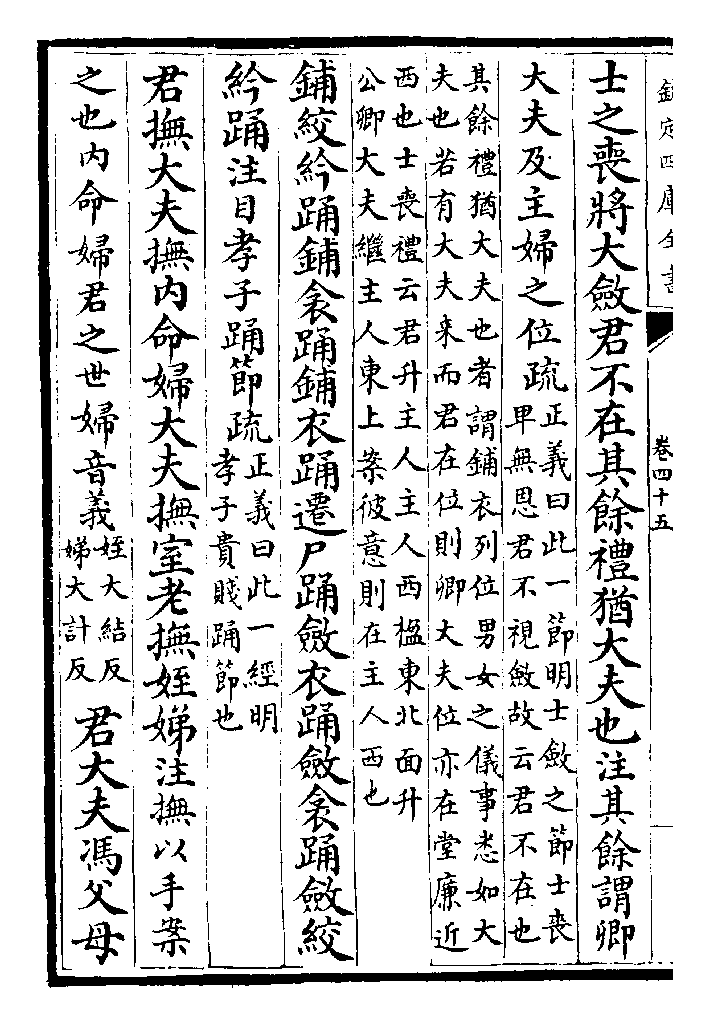 欽定四庫全書
卷四十五
士之喪將大斂君不在其餘禮猶大夫也注其餘謂卿
大夫及主婦之位疏正義曰此一節明士斂之節士喪
卑無恩君不視斂故云君不在也
其餘禮猶大夫也者謂鋪衣列位男女之儀事悉如大
夫也若有大夫来而君在位則卿大夫位亦在堂廉近
西也士喪禮云君升主人主人西楹東北面升
公卿大夫繼主人東上案彼意則在主人西也
鋪絞紟踊鋪衾踊鋪衣踊遷尸踊斂衣踊斂衾踊斂絞
紟踊注目孝子踊節疏正義曰此一經明
孝子貴賤踊節也
君撫大夫撫内命婦大夫撫室老撫姪娣注撫以手案
之也内命婦君之世婦音義姪大結反
娣大計反君大夫馮父母